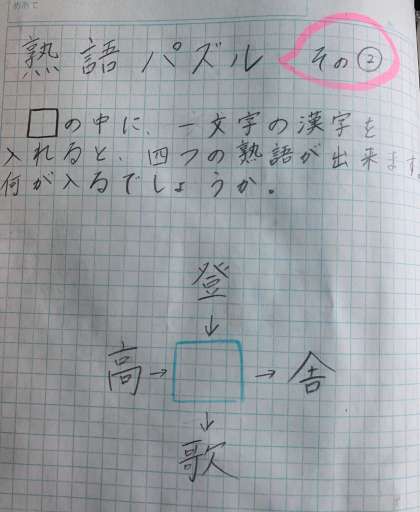 めあて
熟語パズル その②
□の中に、一文字の漢字を
入れると、四つの熟語が出来ます
何が入るでしょうか。
登
↓
高→□→舎
↓
歌